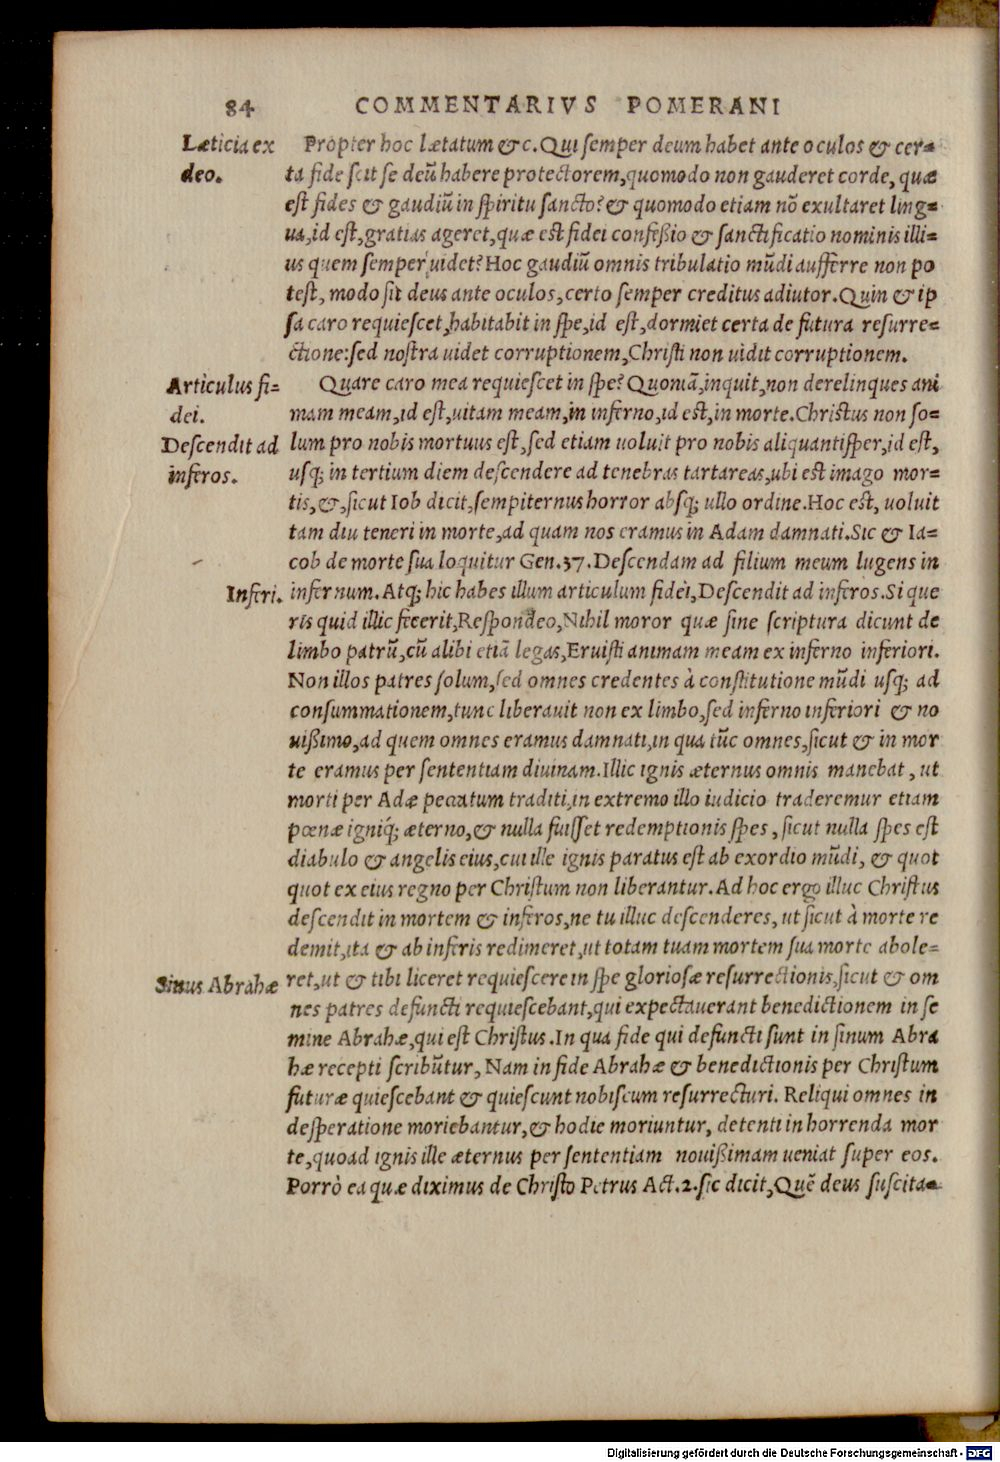 84 COMMENTARIVS POMERANI
Læticia ex
deo.
Propter hoc lætatum &c. Qui semper deum habet ante oculos & cer=
ta fide scit se deũ habere protectorem, quomodo non gauderet corde, quæ
est fides & gaudiũ in spiritu sancto? & quomodo etiam nõ exultaret ling=
ua, id est, gratias ageret, quæ est fidei confeßio & sanctificatio nominis illi=
us quem semper uidet? Hoc gaudiũ omnis tribulatio mũdi aufferre non po
test, modo sit deus ante oculos, certo semper creditus adiutor. Quin & ip
sa caro requiescet, habitabit in spe, id est, dormiet certa de futura resurre=
ctione: sed nostra uidet corruptionem, Christi non uidit corruptionem.
Articulus fi=
dei.
Descendit ad
inferos.
Quare caro mea requiescet in spe? Quoniã, inquit, non derelinques ani
mam meam, id est, uitam meam, in inferno, id est, in morte. Christus non so=
lum pro nobis mortuus est, sed etiam uoluit pro nobis aliquantisper, id est,
usq; in tertium diem descendere ad tenebras tartareas, ubi est imago mor=
tis, &, sicut Iob dicit, sempiternus horror absq; ullo ordine. Hoc est, uoluit
tam diu teneri in morte, ad quam nos eramus in Adam damnati. Sic & Ia=
cob de morte sua loquitur Gen. 37. Descendam ad filium meum lugens in
Inferi.
infernum. Atq; hic habes illum articulum fidei, Descendit ad inferos. Si que
ris quid illic fecerit, Respondeo, Nihil moror quæ sine scriptura dicunt de
limbo patrũ, cũ alibi etiã legas, Eruisti animam meam ex inferno inferiori.
Non illos patres solum, sed omnes credentes à constitutione mũdi usq; ad
consummationem, tunc liberauit non ex limbo, sed inferno inferiori & no
uißimo, ad quem omnes eramus damnati, in qua tũc omnes, sicut & in mor
te eramus per sententiam diuinam. Illic ignis æternus omnis manebat, ut
morti per Adæ peccatum traditi, in extremo illo iudicio traderemur etiam
pœnæ igniq́; æterno, & nulla fuisset redemptionis spes, sicut nulla spes est
diabulo & angelis eius, cui ille ignis paratus est ab exordio mũdi, & quot
quot ex eius regno per Christum non liberantur. Ad hoc ergo illuc Christus
descendit in mortem & inferos, ne tu illuc descenderes, ut sicut à morte re
demit, ita & ab inferis redimeret, ut totam tuam mortem sua morte abole=
Sinus Abrahæ
ret, ut & tibi liceret requiescere in spe gloriosæ resurrectionis, sicut & om
nes patres defuncti requiescebant, qui expectauerant benedictionem in se
mine Abrahæ, qui est Christus. In qua fide qui defuncti sunt in sinum Abra
hæ recepti scribũtur, Nam in fide Abrahæ & benedictionis per Christum
futuræ quiescebant & quiescunt nobiscum resurrecturi. Reliqui omnes in
desperatione moriebantur, & hodie moriuntur, detenti in horrenda mor
te, quoad ignis ille æternus per sententiam nouißimam ueniat super eos.
Porrò ea quæ diximus de Christo Petrus Act. 2. sic dicit, Quẽ deus suscita=
Digitalisierung gefördert durch die Deutsche Forschungsgemeinschaft - DFG